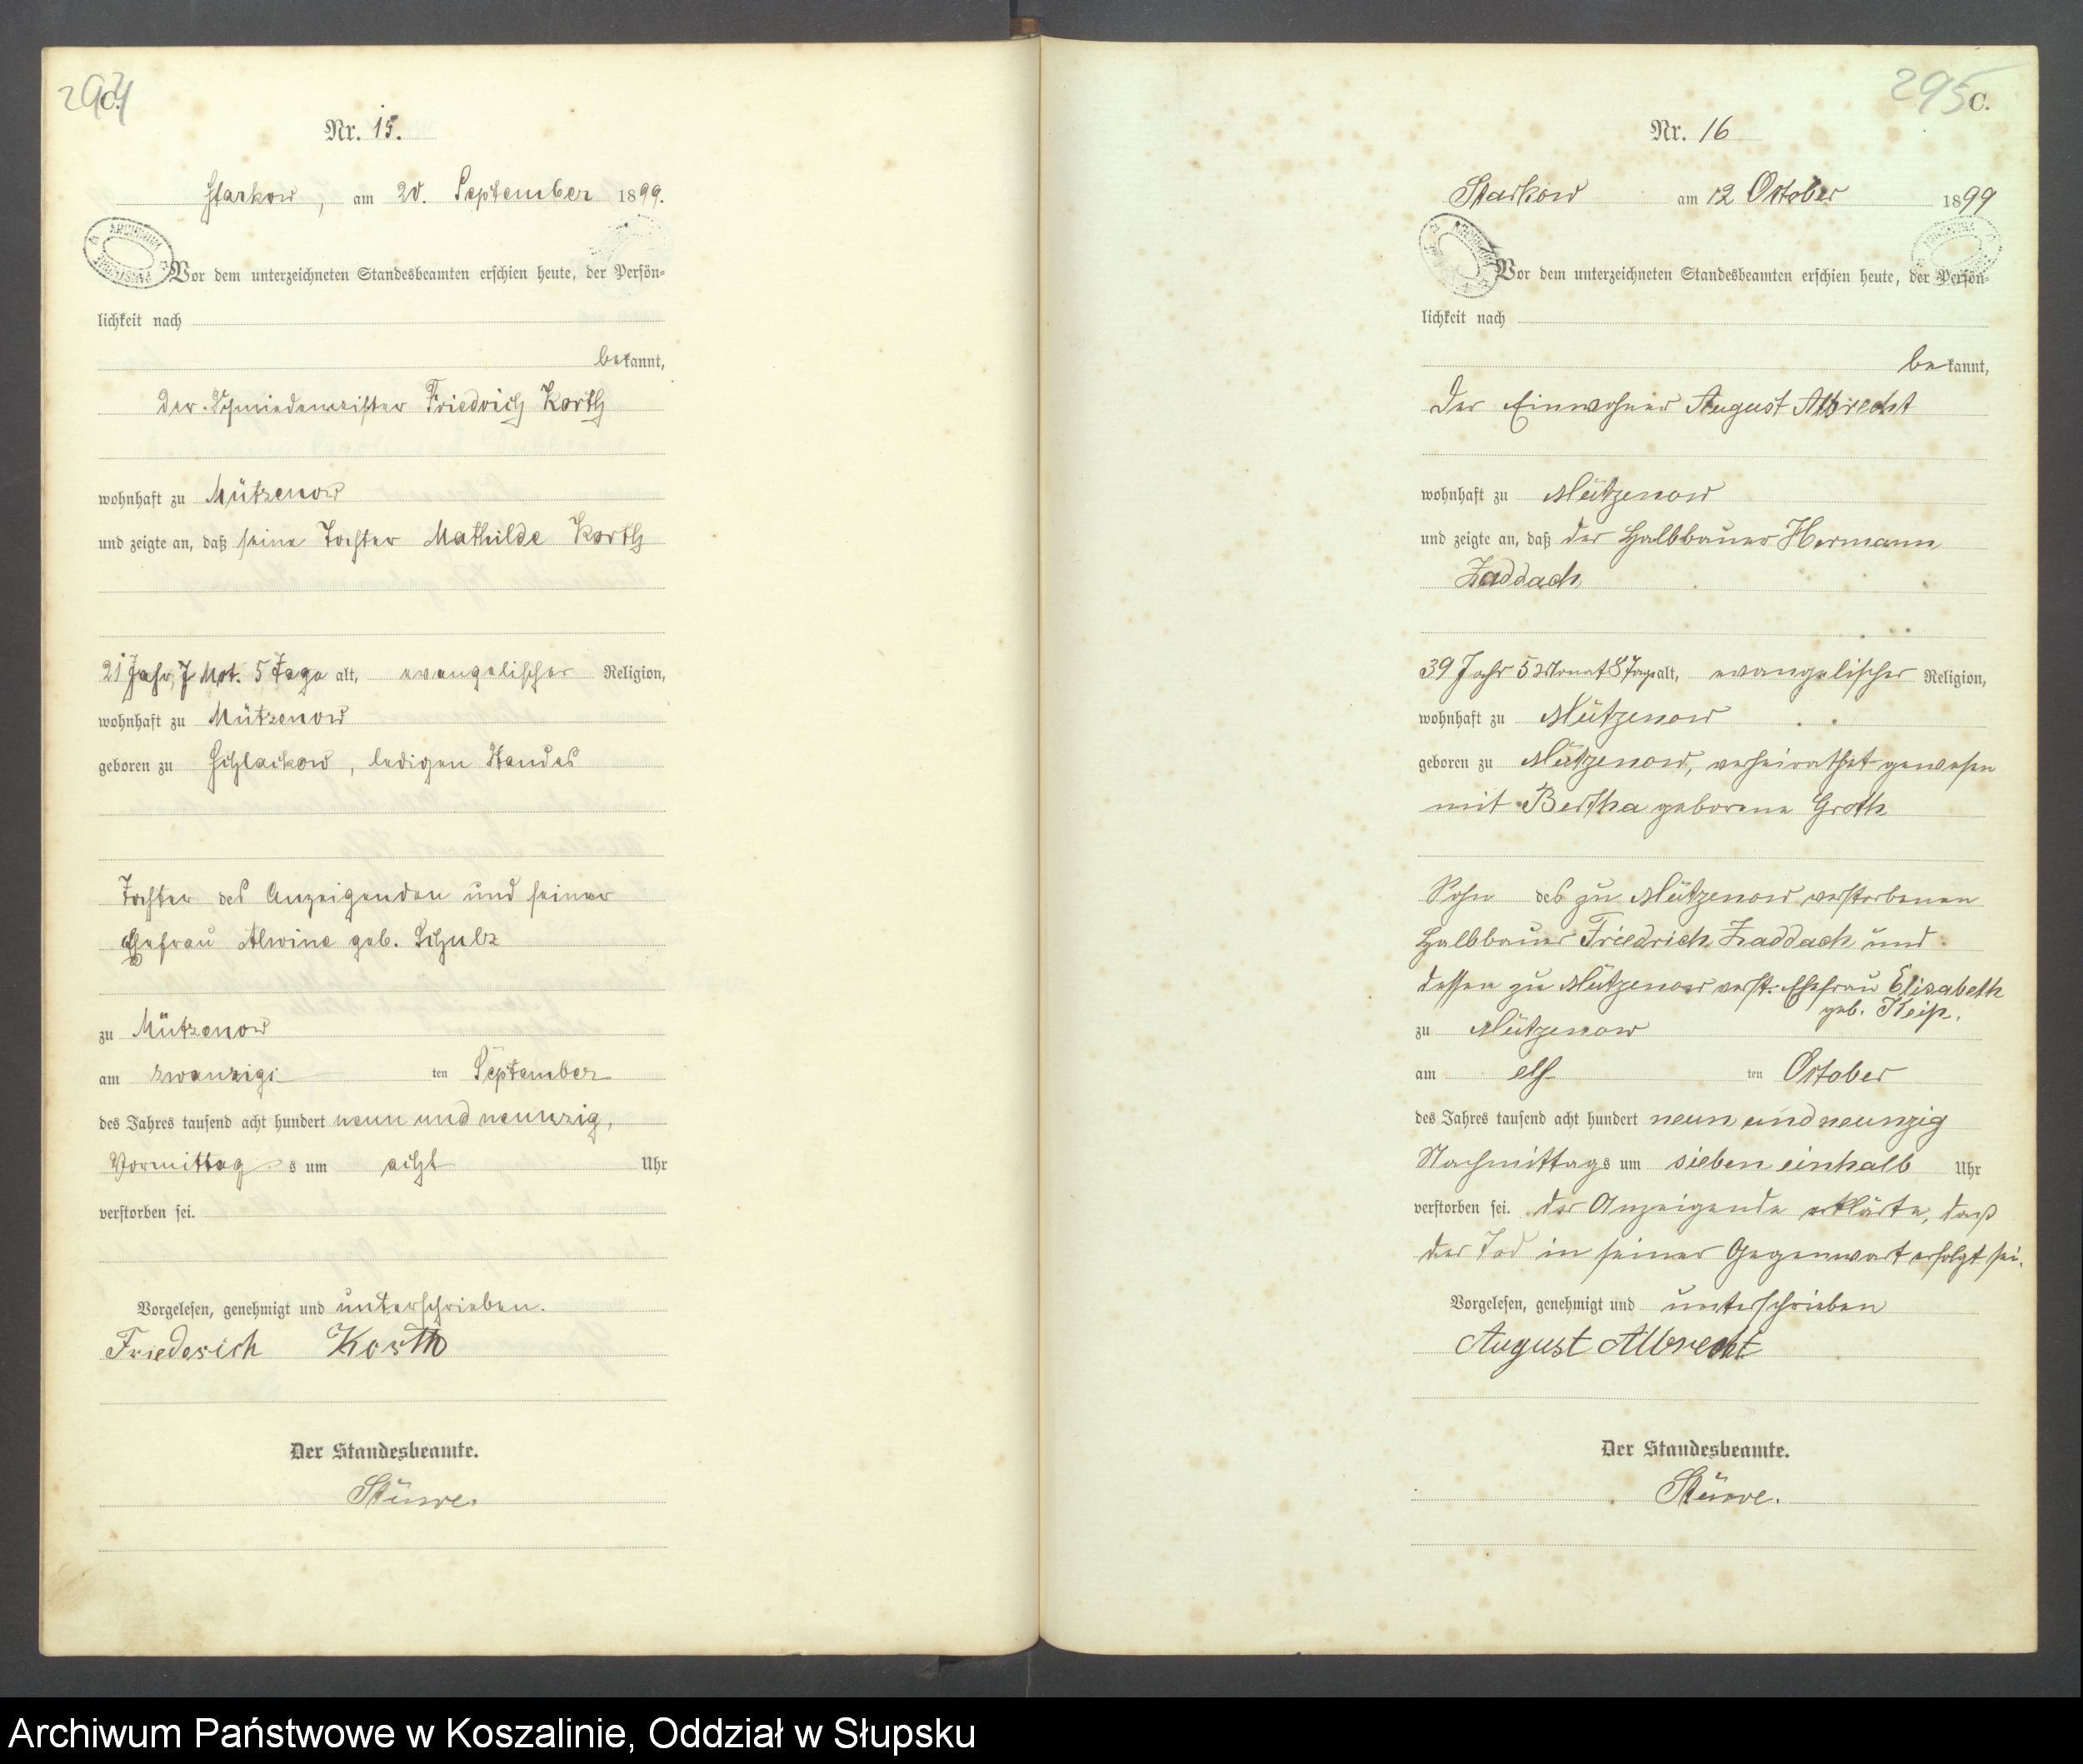 294
C.
Nr. 15.
Starkow, am 20. September 1899.
Vor dem unterzeichneten Standesbeamten erschien heute, der Persön-
lichkeit nach
bekannt,
der Schmiedemeister Friedrich Korth
wohnhaft zu Mützenow
und zeigte an, daß seine Tochter Mathilde Korth
21 Jahr, 7 Mot. 5 Tage alt, evangelischer Religion,
wohnhaft zu Mützenow
geboren zu Schlackow, ledigen Standes
Tochter des Anzeigenden und seiner
Ehefrau Alwine geb. Schulz
zu Mützenow
am zwanzigsten September
des Jahres tausend acht hundert neun und neunzig,
Vormittags um acht Uhr
verstorben sei.
Vorgelesen, genehmigt und unterschrieben.
Friederich Korth
Der Standesbeamte.
Stüwe.
295
C.
Nr. 16
Starkow am 12 October 1899
Vor dem unterzeichneten Standesbeamten erschien heute, der Persön-
lichkeit nach
bekannt,
der Einwohner August Albrecht
wohnhaft zu Mützenow
und zeigte an, daß der Halbbauer Hermann
Zaddach
39 Jahr 5 Monat 8 Tage alt, evangelischer Religion,
wohnhaft zu Mützenow
geboren zu Mützenow, verheirathet gewesen
mit Bertha geborene Groth
Sohn des zu Mützenow verstorbenen
Halbbauer Friedrich Zaddach und
dessen zu Mützenow verst. Ehefrau Elisabeth
geb. Keip.
zu Mützenow
am elften October
des Jahres tausend acht hundert neun und neunzig
Nachmittags um sieben einhalb Uhr
verstorben sei. der Anzeigende erklärte, daß
der Tod in seiner Gegenwart erfolgt sei.
Vorgelesen, genehmigt und unterschrieben
August Albrecht
Der Standesbeamte.
Stüwe.
Archiwum Państwowe w Koszalinie, Oddział w Słupsku